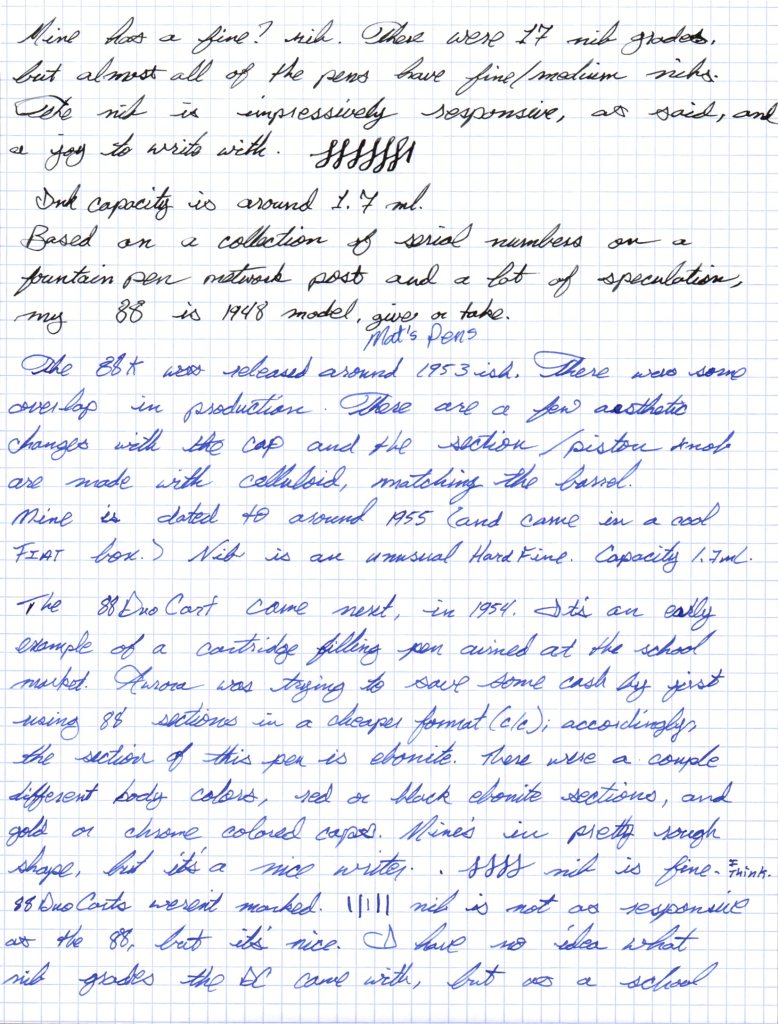 Mine has a fine? nib. There were 17 nib grades,
but almost all of the pens have fine/medium nibs.
The nib is impressively responsive, as said, and
a joy to write with.
Ink capacity is around 1.7 ml.
Based on a collection of serial numbers on a
fountain pen network post and a lot of speculation,
my 88 is 1948 model, give or take.
Mat's Pens
The 88K was released around 1953ish. There were some
overlap in production. There are a few aesthetic
changes with the cap and the section/piston knob
are made with celluloid, matching the barrel.
Mine is dated to around 1955 (and came in a cool
FIAT box.) Nib is an unusual Hard Fine. Capacity 1.7ml.
The 88 Duo Cart came next, in 1954. It's an early
example of a cartridge filling pen aimed at the school
market. Aurora was trying to save some cash by just
using 88 sections in a cheaper format (c/c); accordingly,
the section of this pen is ebonite. There were a couple
different body colors, red or black ebonite sections, and
gold or chrome colored caps. Mine's in pretty rough
shape, but it's a nice writer. nib is fine. I think.
88 Duo Carts weren't marked. nib is not as responsive
as the 88, but it's nice. I have no idea what
nib grades the DC came with, but as a school